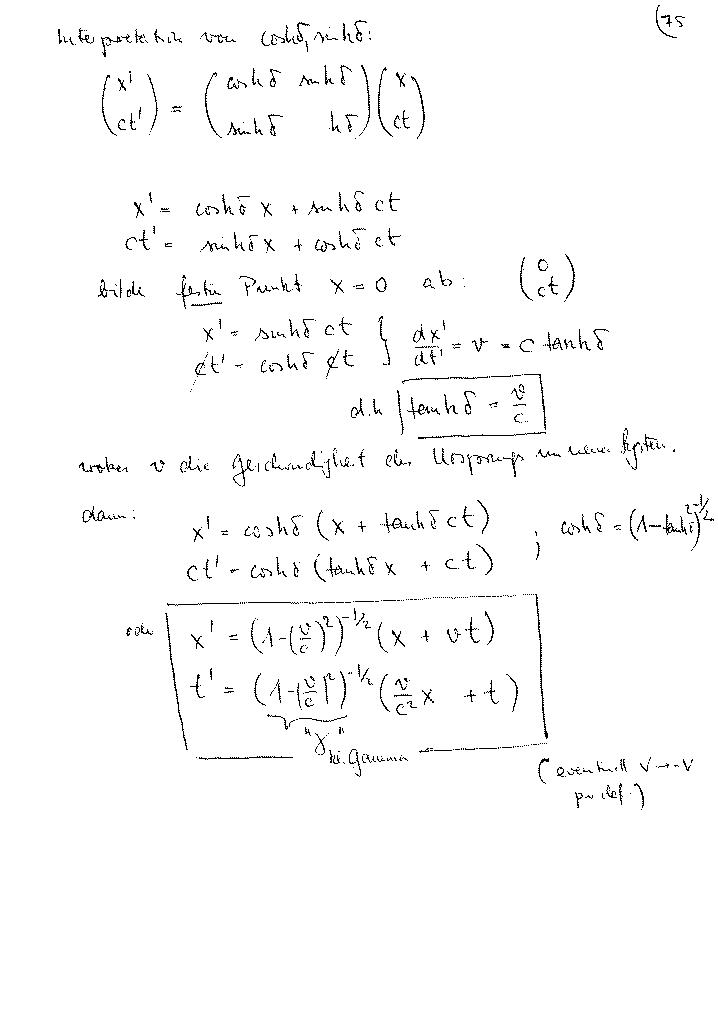 (75
Interpretation von coshδ, sinhδ:
(x' ct') = (coshδ sinhδ sinhδ hδ)(x ct)
x' = coshδ x + sinhδ ct
ct' = sinhδ x + coshδ ct
bilde festen Punkt x = 0 ab: (0 ct)
x' = sinhδ ct } dx'/dt' = v = c tanhδ
ct' = coshδ ct
d.h tanhδ = v/c
wobei v die Geschwindigkeit des Ursprungs im neuen System.
dann: x' = coshδ (x + tanhδ ct) ; coshδ = (1-tanh²δ)^-1/2
ct' = coshδ (tanhδ x + ct)
oder x' = (1-(v/c)²)^-1/2 (x + vt)
t' = (1-(v/c)²)^-1/2 (v/c² x + t)
"γ" Gamma
(eventuell v → -v
per def.)